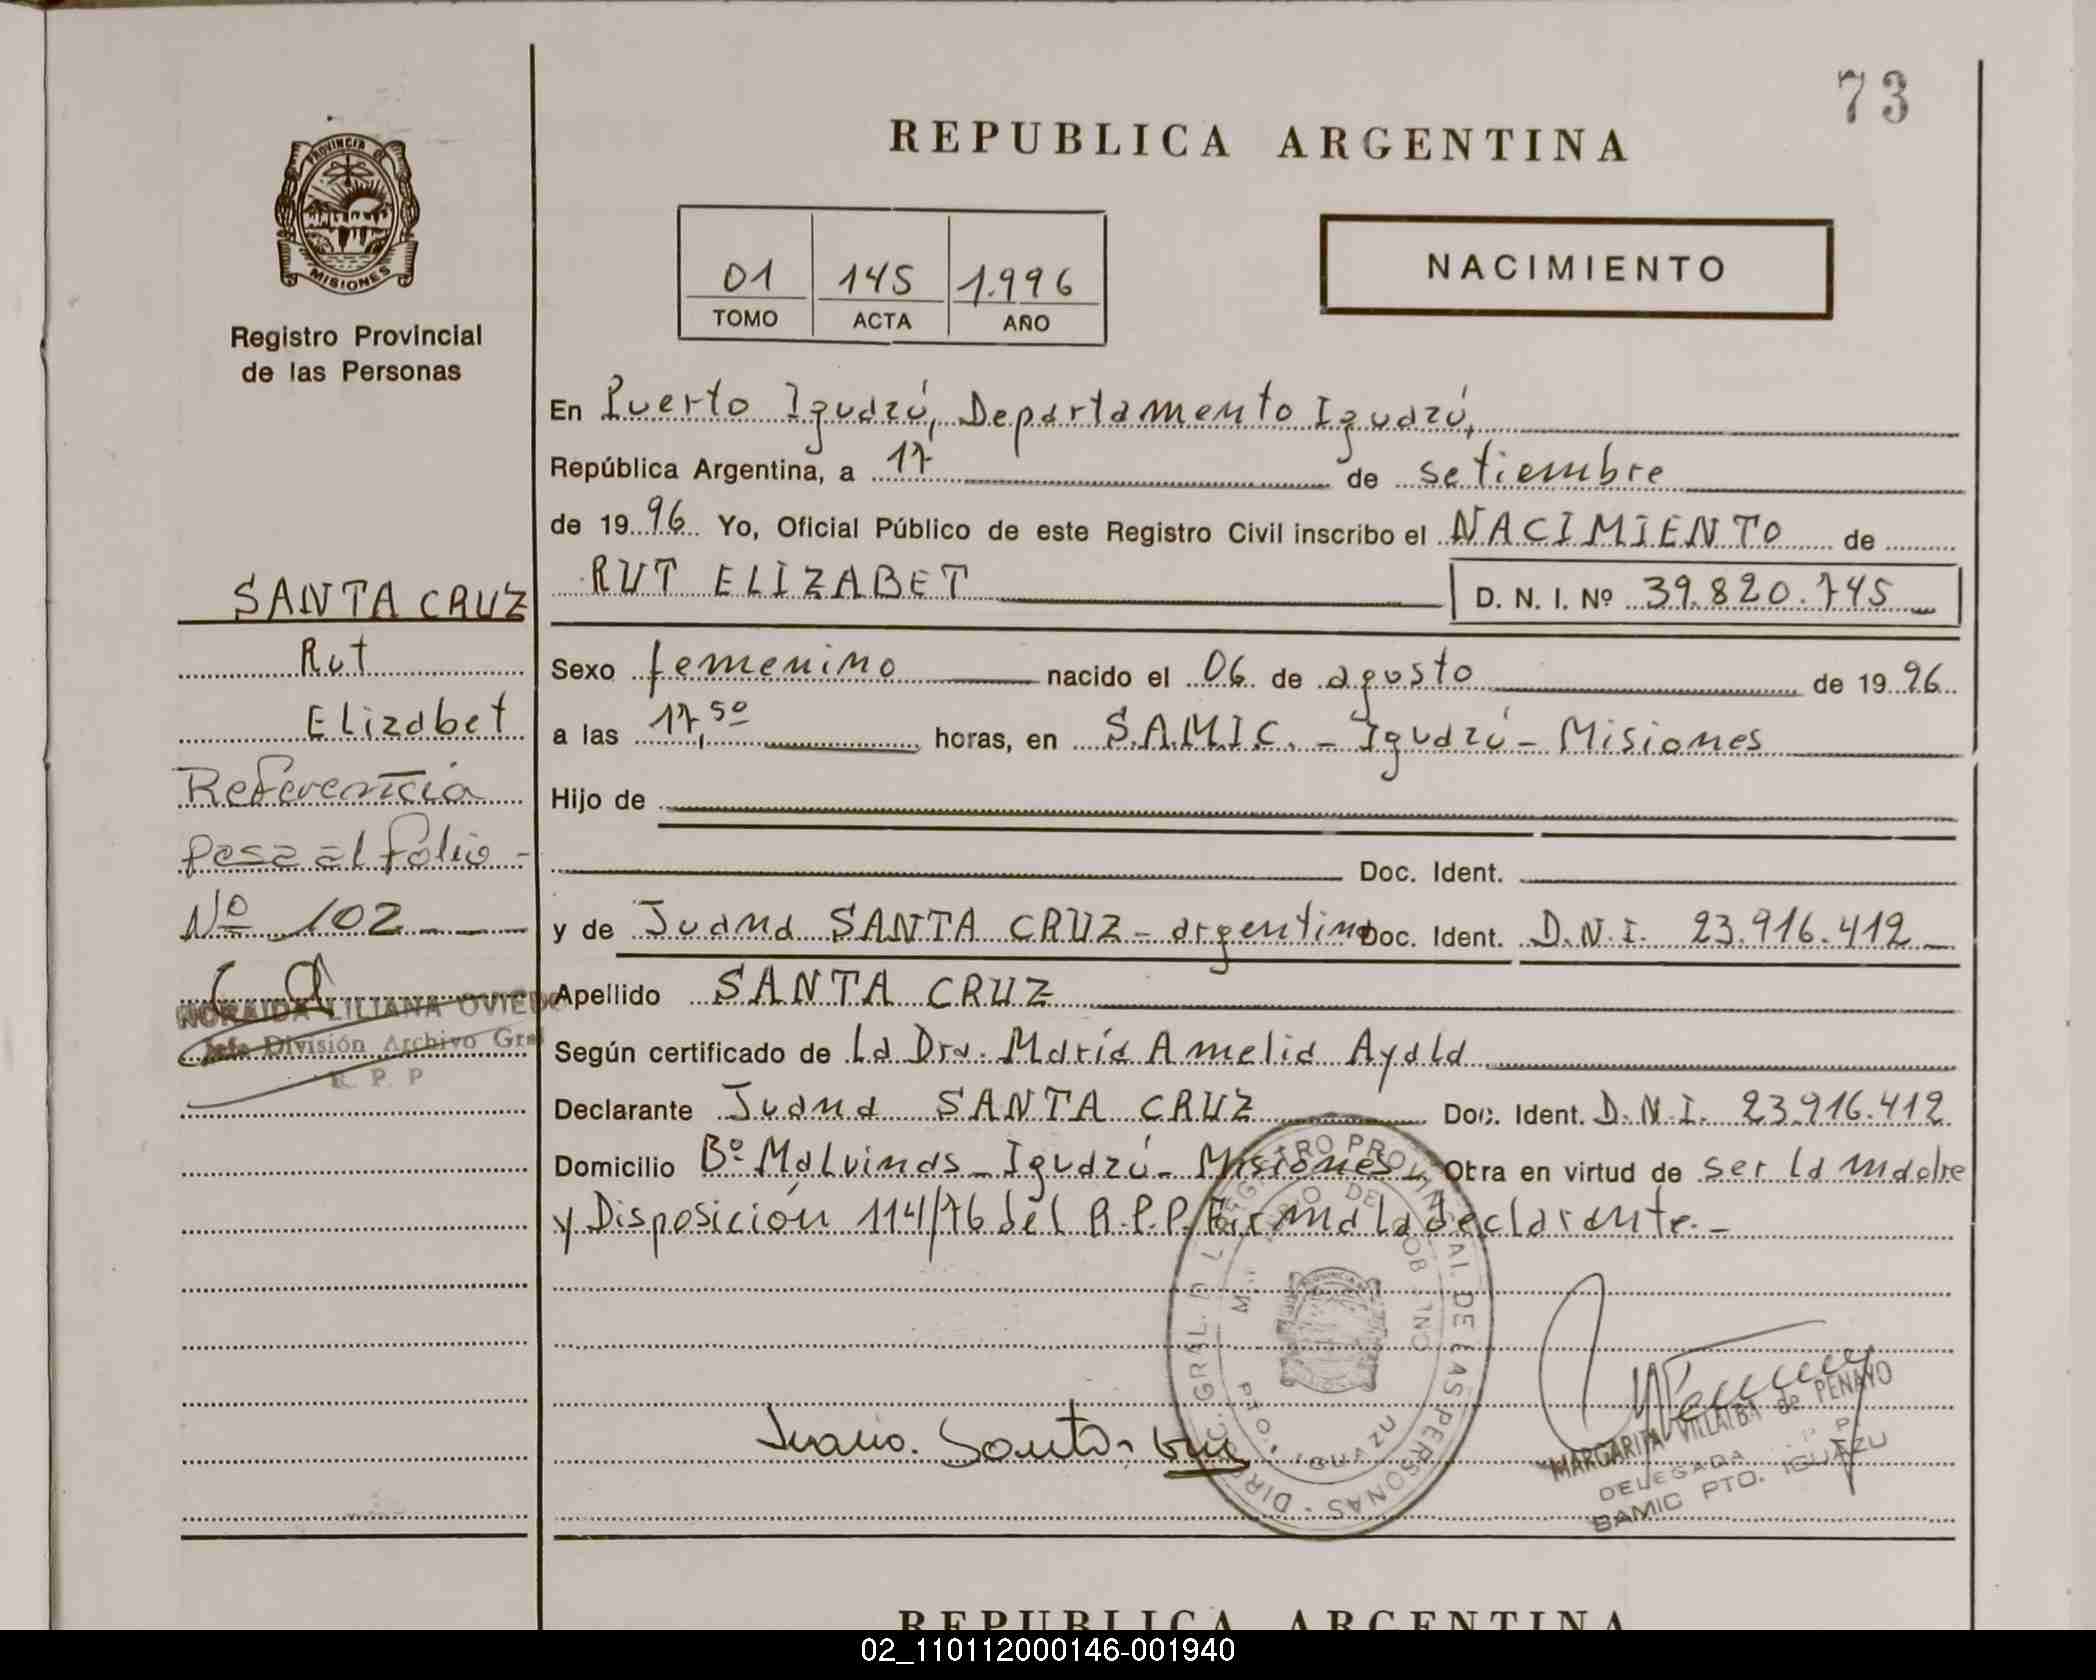 73
REPUBLICA ARGENTINA
PROVINCIA DE
MISIONES
Registro Provincial
de las Personas
01 145 1.996
TOMO ACTA AÑO
NACIMIENTO
En Puerto Iguazú, Departamento Iguazú,
República Argentina, a 17 de setiembre
de 19 96 Yo, Oficial Público de este Registro Civil inscribo el NACIMIENTO de
RUT ELIZABET D. N. I. Nº 39.820.745
Sexo femenino nacido el 06 de agosto de 19 96
a las 17,50 horas, en S.A.M.I.C. - Iguazú - Misiones
Hijo de
Doc. Ident.
y de Juana SANTA CRUZ - argentina Doc. Ident. D.N.I. 23.916.412
Apellido SANTA CRUZ
Según certificado de La Dra. María Amelia Ayala
Declarante Juana SANTA CRUZ Doc. Ident. D.N.I. 23.916.412
Domicilio Bº Malvinas - Iguazú - Misiones Otra en virtud de ser la madre
y Disposición 114/76 del R.P.P. Firma la declarante. -
SANTA CRUZ
Rut
Elizabet
Referencia
pasa al folio -
Nº 102
NORAIDA LILIANA OVIEDO
Jefe División Archivo Gral
R. P. P
DIREC. GRAL. DEL REGISTRO PROVINCIAL DE LAS PERSONAS
PTO. IGUAZU
Juana Santa Cruz
MARGARITA VILLALBA de PENAYO
DELEGADA R. P. P.
SAMIC PTO. IGUAZU
REPUBLICA ARGENTINA
02_110112000146-001940